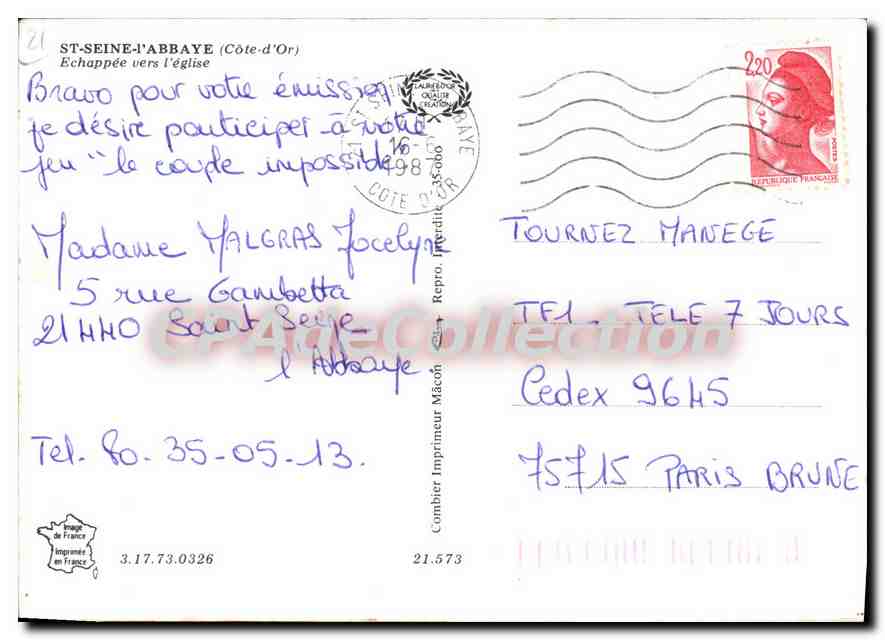 21
ST-SEINE-l'ABBAYE (Côte-d'Or)
Echappée vers l'église
Bravo pour votre émission
je désire participer à votre
jeu "le couple impossible"
Madame MALGRAS Jocelyne
5 rue Gambetta
21440 Saint Seine
l'Abbaye
Tel. 80. 35-05-13.
Image
de France
Imprimée
en France
3.17.73.0326
21.573
Combier Imprimeur Mâcon
Repro. Interdite 35-000
LAURIER D'OR
DE LA QUALITE
CREATION
16-
1987
COTE D'OR
2,20
POSTES
REPUBLIQUE FRANÇAISE
TOURNEZ MANEGE
TF1 - TELE 7 JOURS
Cedex 9645
75715 PARIS BRUNE
CPAdeCollection